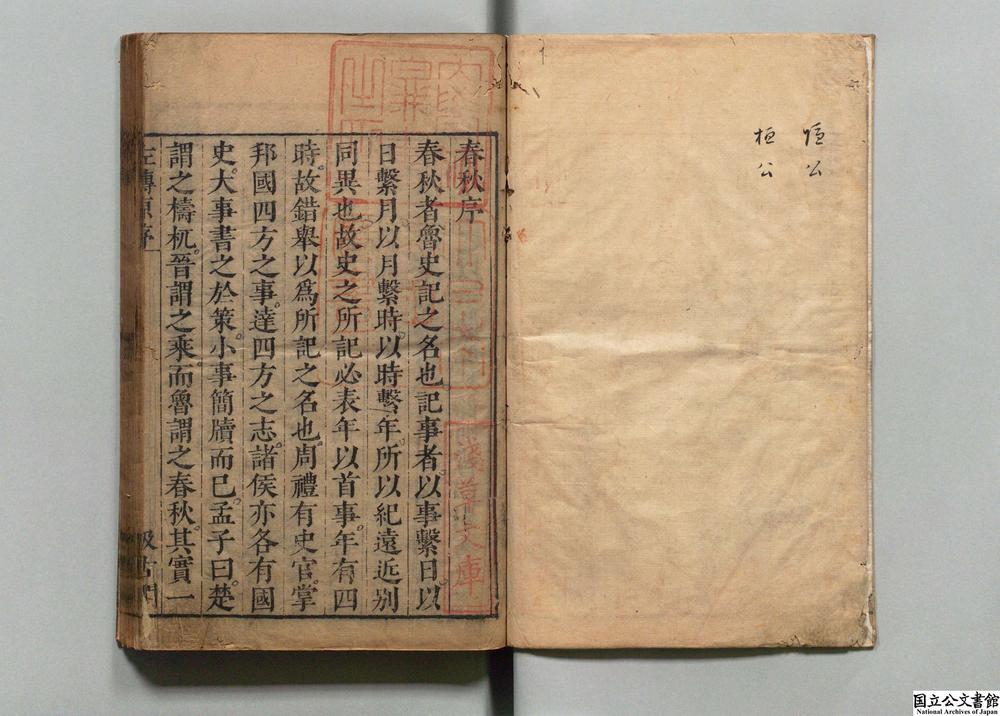 隱公
桓公
春秋序
春秋者魯史記之名也記事者以事繫日以
日繫月以月繫時以時繫年所以紀遠近別
同異也故史之所記必表年以首事年有四
時故錯舉以爲所記之名也周禮有史官掌
邦國四方之事達四方之志諸侯亦各有國
史大事書之於策小事簡牘而已孟子曰楚
謂之檮杌晉謂之乘而魯謂之春秋其實一
左傳原序 一
汲古閣
淺草文庫
国立公文書館
National Archives of Japan